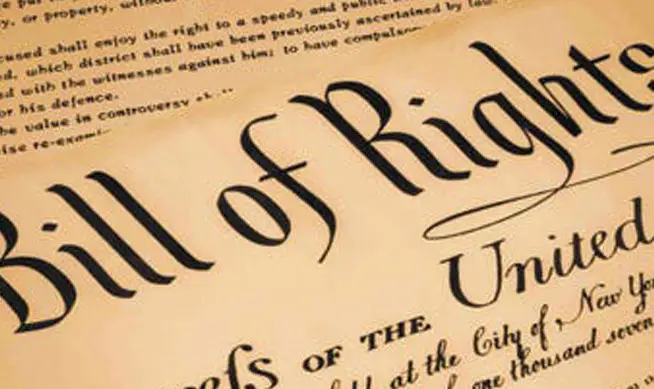 y, or property, without
cused shall enjoy the right to a speedy and public
d, which district shall have been previously ascertained by law.
d with the witnesses against him; to have compulsor
or his defence.
he value in controversy sh
ise re-exami
Bill of Rights
of the United
at the City of New Yo
one thousand seven